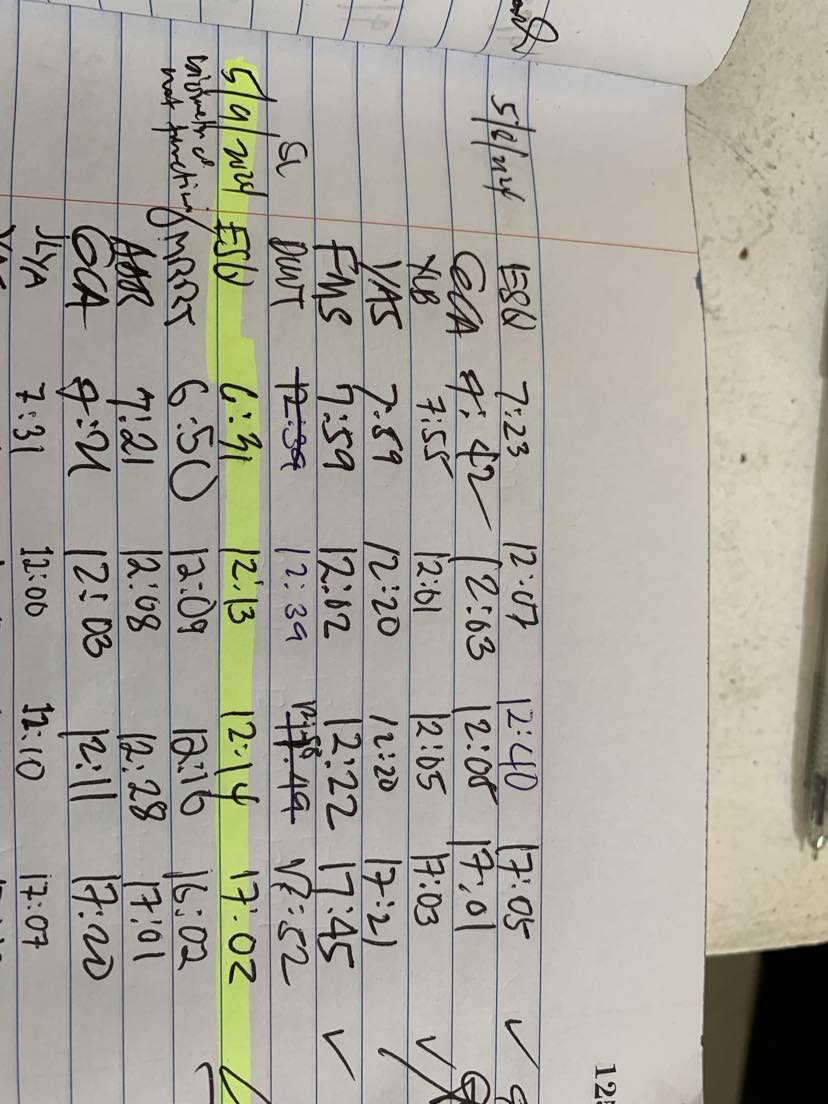 5/8/24 ESQ 7:23 12:07 12:40 17:05 ✓
GCA 7:42 12:03 12:08 17:01
XLB 7:55 12:01 12:05 17:03 ✓
VAS 7:59 12:20 12:20 17:21
FMS 7:59 12:02 12:22 17:45 ✓
SL DWT 12:39 12:39 17:52
5/9/2024 ESQ 6:31 12:13 12:14 17:02
biometrics not function MRRT 6:50 12:09 12:16 16:02
7:21 12:08 12:28 17:01
GCA 12:03 12:11 17:20
JLYA 7:31 12:00 12:10 17:07